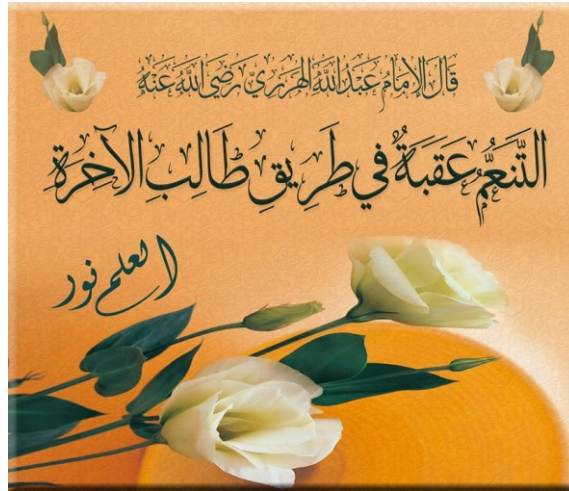 قَالَ الإِمَامُ عَبْدُ اللَّهِ الهَرَرِيّ رَضِيَ اللَّهُ عَنْهُ
التَّنَعُّمُ عَقَبَةٌ فِي طَرِيقِ طَالِبِ الآخِرَةِ
العلم نور